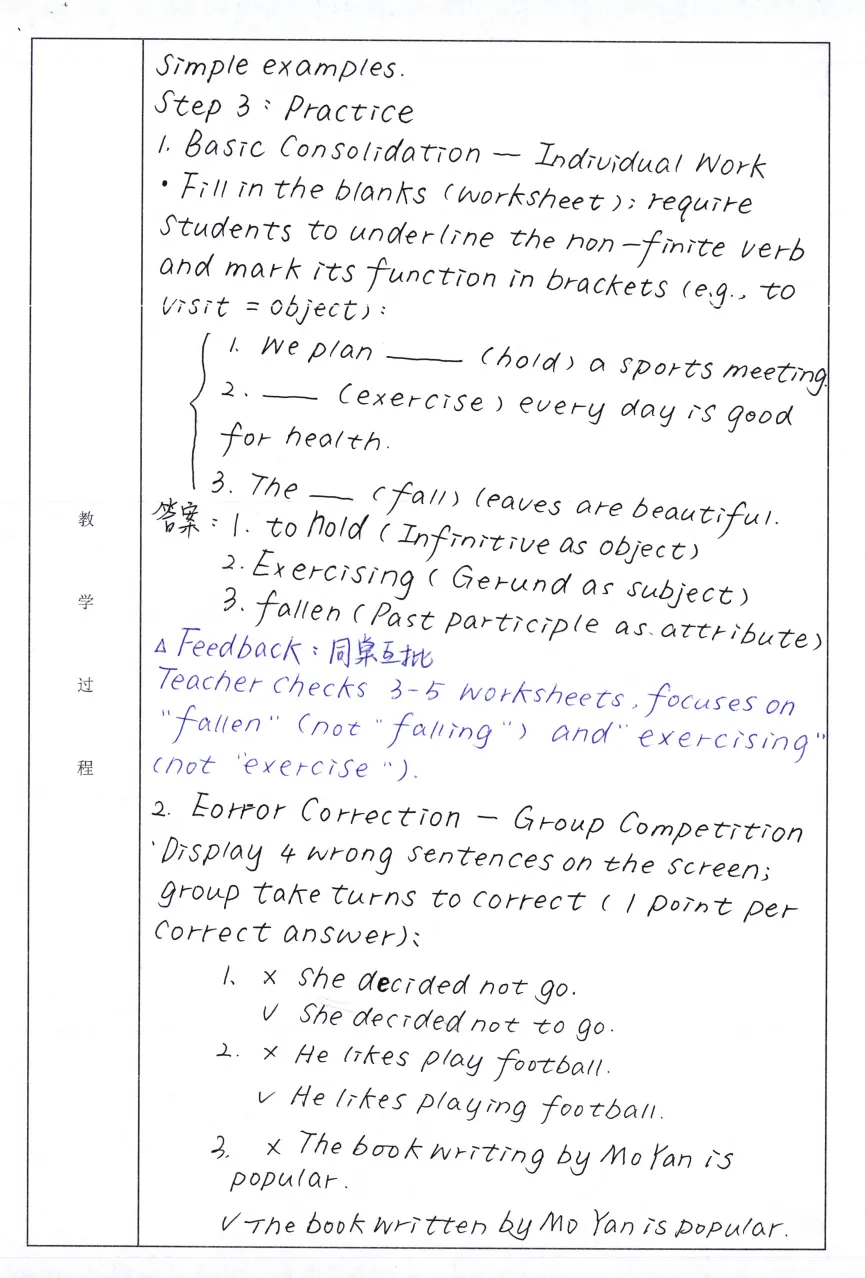 Simple examples.
Step 3: Practice
1. Basic Consolidation — Individual Work
• Fill in the blanks (worksheet); require
Students to underline the non-finite verb
and mark its function in brackets (e.g., to
visit = object):
1. We plan ____ (hold) a sports meeting.
2. ____ (exercise) every day is good
for health.
3. The ___ (fall) leaves are beautiful.
答案: 1. to hold (Infinitive as object)
2. Exercising (Gerund as subject)
3. fallen (Past participle as attribute)
△ Feedback: 同桌互批
Teacher checks 3-5 worksheets, focuses on
"fallen" (not "falling") and "exercising"
(not "exercise").
2. Eorror Correction — Group Competition
·Display 4 wrong sentences on the screen;
group take turns to correct (1 point per
correct answer);
1、 × She decided not go.
√ She decided not to go.
2. × He likes play football.
√ He likes playing football.
3. × The book writing by Mo Yan is
popular.
√ The book written by Mo Yan is popular.
教
学
过
程